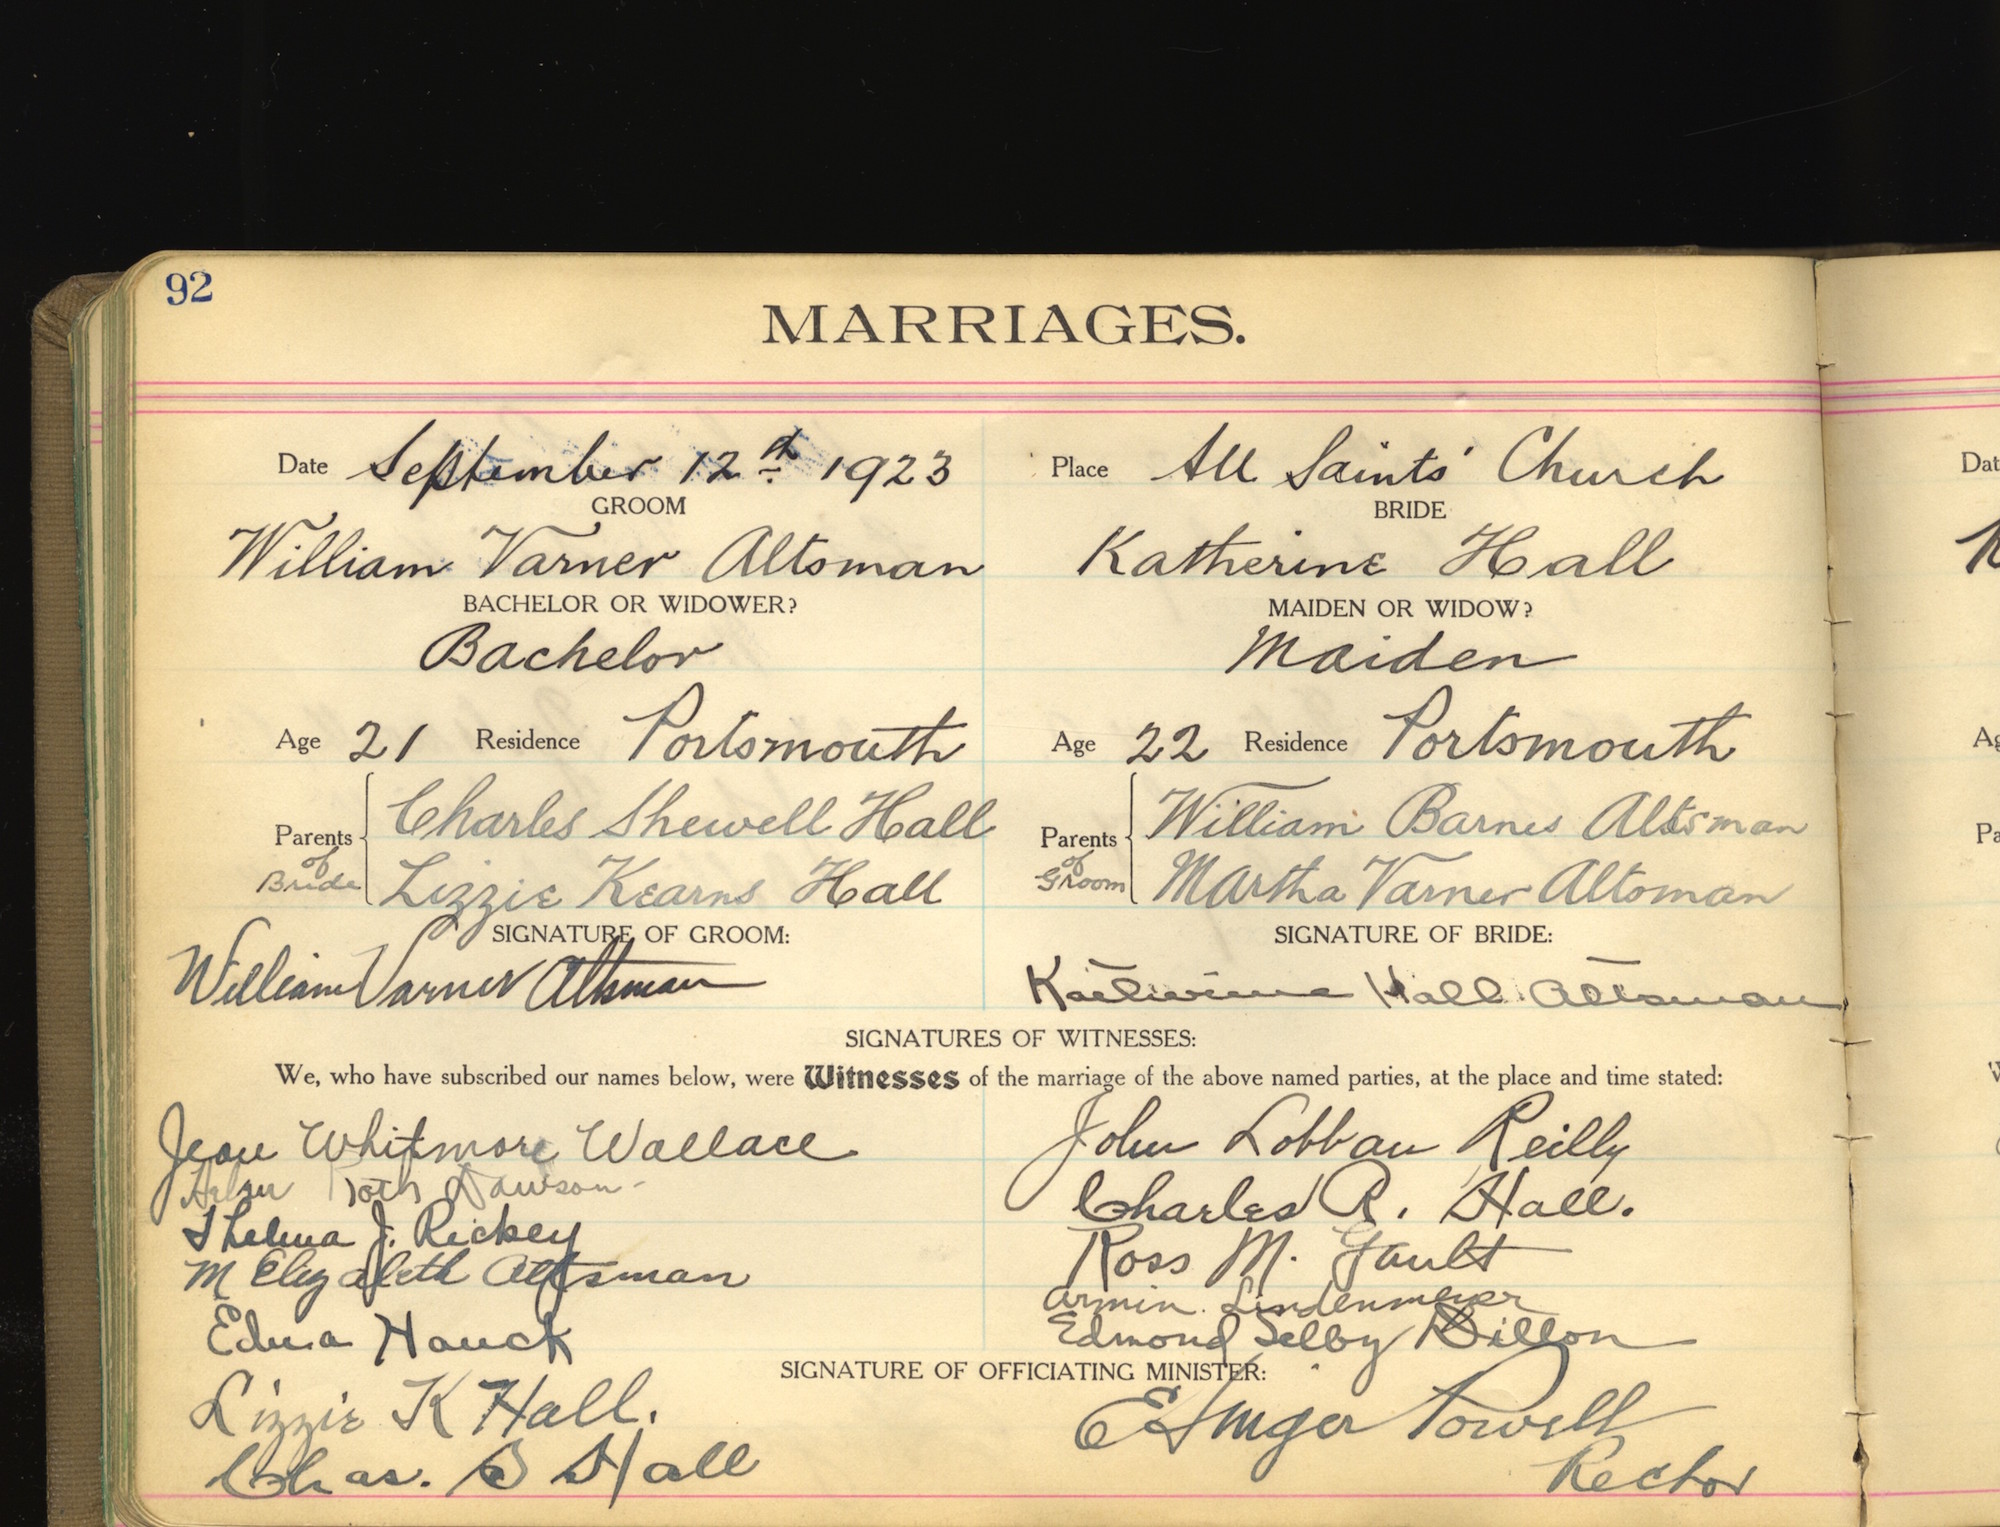 92
MARRIAGES.
Date September 12th 1923 Place All Saints' Church
GROOM BRIDE
William Varner Altsman Katherine Hall
BACHELOR OR WIDOWER? MAIDEN OR WIDOW?
Bachelor Maiden
Age 21 Residence Portsmouth Age 22 Residence Portsmouth
Parents of Bride Charles Shewell Hall Parents of Groom William Barnes Altsman
Lizzie Kearns Hall Martha Varner Altsman
SIGNATURE OF GROOM: SIGNATURE OF BRIDE:
William Varner Altsman Katherine Hall Altsman
SIGNATURES OF WITNESSES:
We, who have subscribed our names below, were Witnesses of the marriage of the above named parties, at the place and time stated:
Jean Whitmore Wallace John Lobban Reilly
Roth Dawson Charles R. Hall.
Thelma J. Rickey Ross M. Gault
M Elizabeth Altsman Armin Lindenmeyer
Edna Hauck Edmond Selby Dillon
SIGNATURE OF OFFICIATING MINISTER:
Lizzie K Hall. E Powell
Chas. S Hall Rector
Dat
Ag
Pa